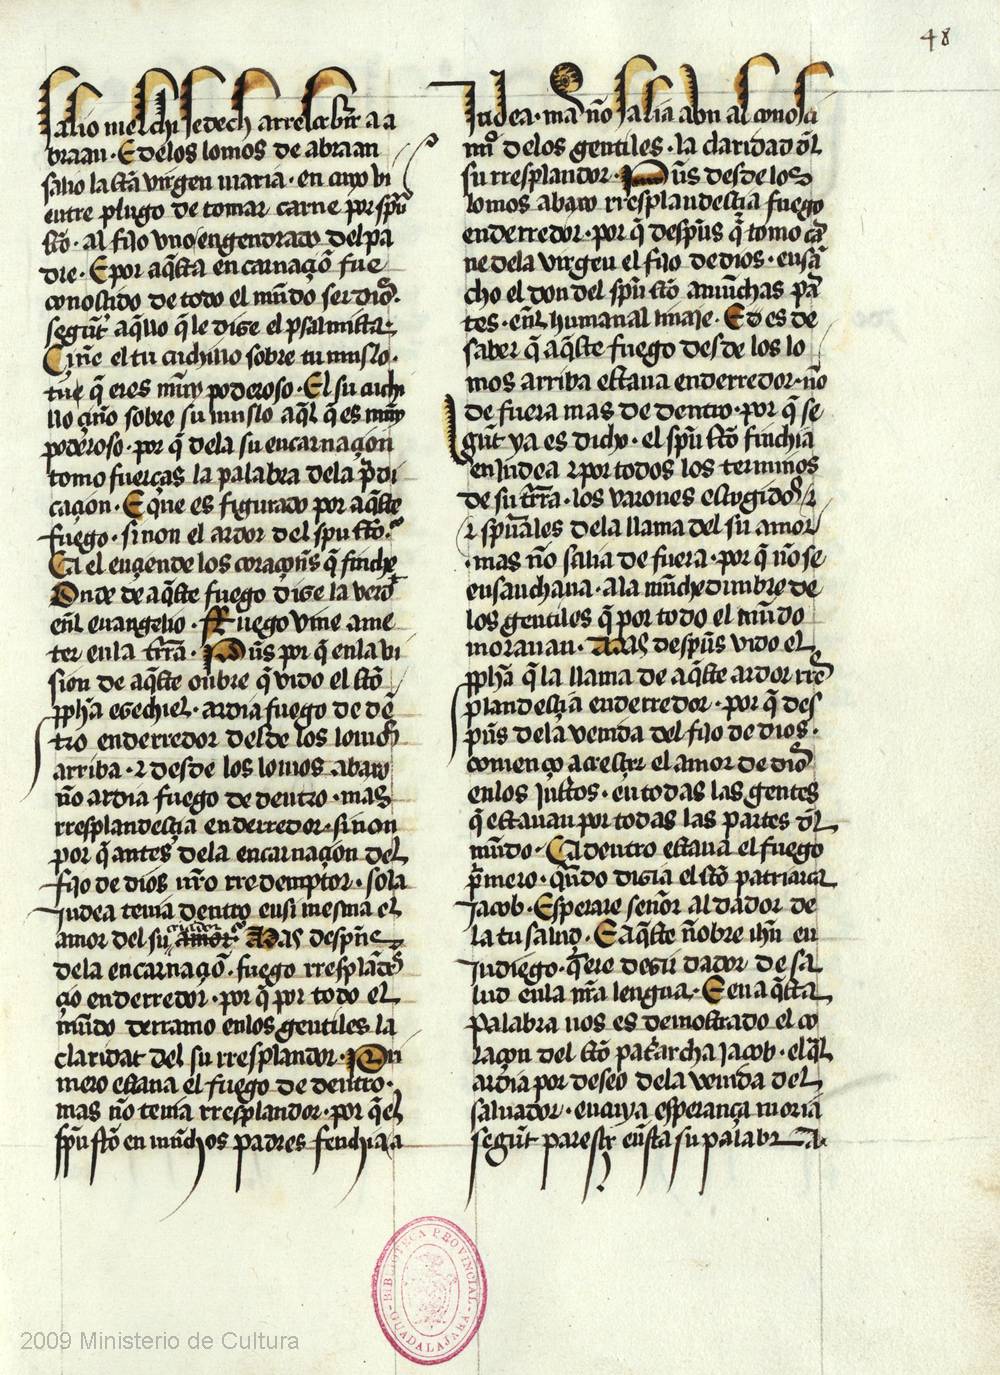 48
salio melchisedech a rrecebir a a
braan · E delos lomos de abraan
salio la sc̃ta virgen maria · en cuyo vi
entre plugo de tomar carne por sp̃u
sc̃to · al fijo vno engendrado del pa
dre · E por aq̃sta encarnaçõ fue
conosçido de todo el mũdo ser dios ·
segũt aq̃llo q̃ le dise el psalmista ·
Ciñe el tu cuchillo sobre tu muslo ·
tue q̃ eres muy poderoso · El su cuchi
llo çiño sobre su muslo aq̃l q̃ es muy
poderoso · por q̃ dela su encarnaçion
tomo fuerças la palabra dela p̃di
caçion · E que es figurado por aq̃ste
fuego · sinon el ardor del sp̃u sc̃to ·
Ca el ençiende los coraçoñs q̃ finche
Onde de aq̃ste fuego dise la verd̃
eñl euangelio · Fuego vine a me
ter en la trr̃a · Pũs por q̃ en la vi
sion de aq̃ste onbre q̃ vido el sc̃to
pph̃a esechiel · ardia fuego de dẽ
tro enderredor desde los lomos
arriba · ⁊ desde los lomos abaxo
ño ardia fuego de dentro · mas
rresplandesçia enderredor · sinon
por q̃ antes dela encarnaçion del
fijo de dios nr̃o rredemptor · sola
Judea tenia dentro en si mesma el
amor del su criador amor · Mas despũe
dela encarnaçõ · fuego rresplãdes
çio enderredor · por q̃ por todo el
mũdo derramo enlos gentiles la
claridat del su rresplandor · Pri
mero estaua el fuego de dentro ·
mas ño tenia rresplandor · por q̃ el
sp̃u sc̃to en mũchos padres fenchia a
Judea · ma ño salia a bn al conosci
mĩo delos gentiles · la claridad dl̃
su rresplandor · Pũs desde los
lomos abaxo rresplandesçia fuego
enderredor · por q̃ despũs q̃ tomo car
ne dela virgen el fijo de dios · ensã
cho el don del sp̃u sc̃to a mũchas par
tes · eñl humanal linaje · E d es de
saber q̃ aq̃ste fuego desde los lo
mos arriba estaua enderredor · ño
de fuera mas de dentro · por q̃ se
gũt ya es dicho · el sp̃u sc̃to finchia
en Judea ⁊ por todos los terminos
de su trr̃a · los varones escogidos ⁊
⁊ sp̃uales dela llama del su amor
· mas ño salia de fuera · por q̃ ño se
ensanchaua · a la mũchedunbre de
los gentiles q̃ por todo el mũdo
morauan · Mas despũs vido el
pph̃a q̃ la llama de aq̃ste ardor rres
plandesçia enderredor · por q̃ des
pũs dela venida del fijo de dios ·
començo a cresçer el amor de dios
enlos Justos · en todas las gentes
q̃ estauan por todas las partes dl̃
mũdo · Ca dentro estaua el fuego
p̃mero · qũdo disia el sc̃to patriarca
Jacob · Esperare señor al dador de
la tu salud · E aq̃ste ñobre ihũ en
Judiego · q̃ere desir dador de sa
lud enla nr̃a lengua · E en aq̃sta
palabra nos es demostrado el co
raçon del sc̃to pat̃archa Jacob · el q̃l
ardia por deseo dela venida del
saluador · en cuya esperança moria
segũt paresçe eñsta su palabra
BIBLIOTECA PROVINCIAL
GUADALAJARA
2009 Ministerio de Cultura